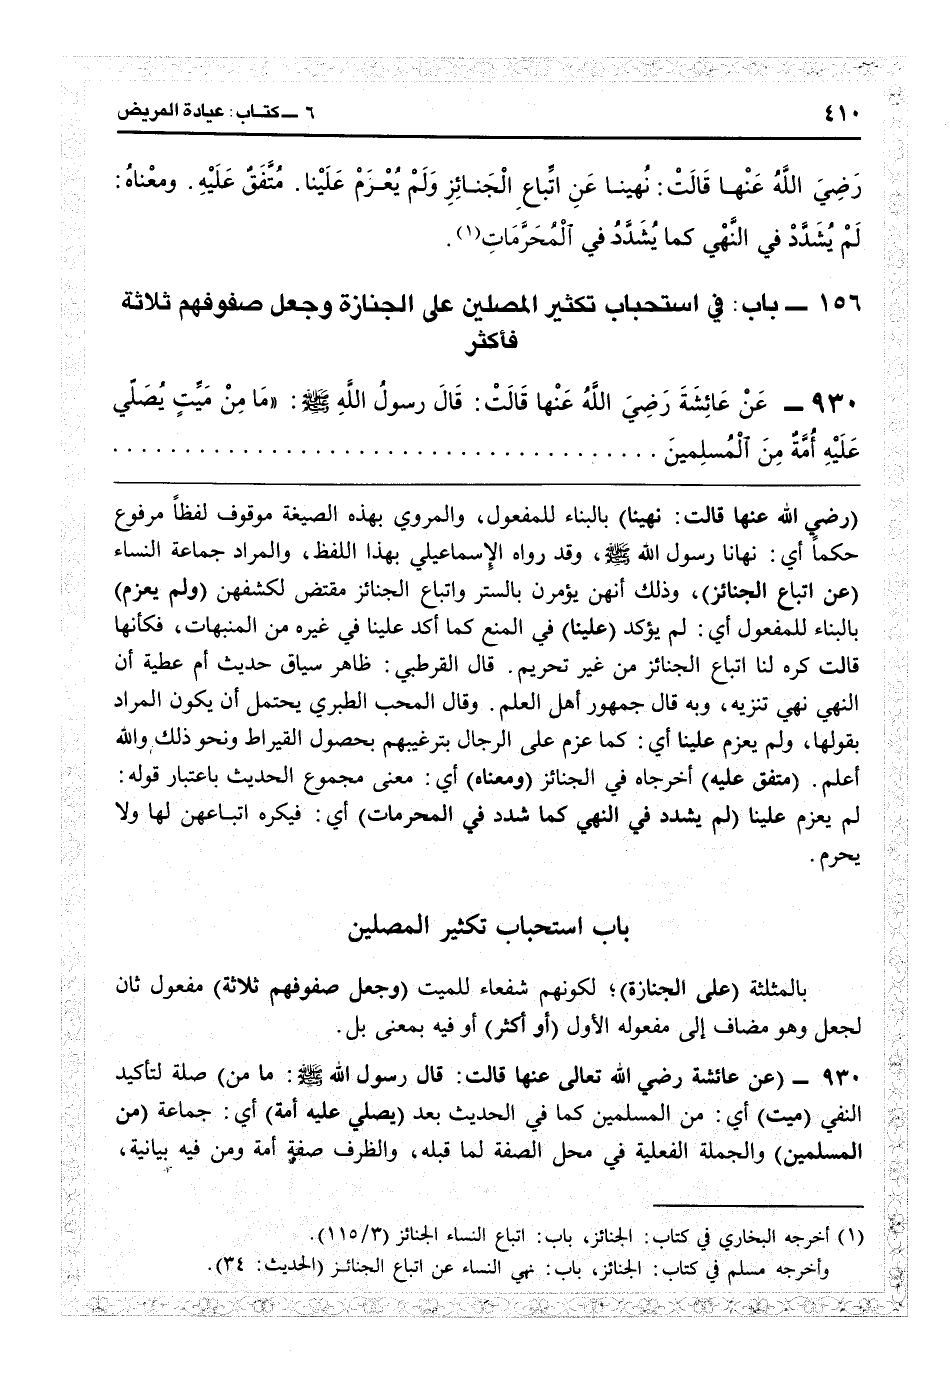 ٤١٠
٦ ــ كتاب: عيادة المريض
رَضِيَ اللَّهُ عَنْها قَالَتْ: نُهينا عَنِ اتِّباعِ الْجَنائِزِ وَلَمْ يُعْزَمْ عَلَيْنا. مُتَّفَقٌ عَلَيْهِ. ومعْناهُ:
لَمْ يُشَدَّدْ في النَّهْيِ كما يُشَدَّدُ في ٱلْمُحَرَّمَاتِ(١).
١٥٦ ــ باب: في استحباب تكثير المصلين على الجنازة وجعل صفوفهم ثلاثة
فأكثر
٩٣٠ ــ عَنْ عَائِشَةَ رَضِيَ اللَّهُ عَنْها قَالَتْ: قَالَ رسولُ اللَّهِ ﷺ: «مَا مِنْ مَيِّتٍ يُصَلِّي
عَلَيْهِ أُمَّةٌ مِنَ ٱلْمُسلِمينَ ......................................
(رضي الله عنها قالت: نهينا) بالبناء للمفعول، والمروي بهذه الصيغة موقوف لفظاً مرفوع
حكماً أي: نهانا رسول الله ﷺ، وقد رواه الإسماعيلي بهذا اللفظ، والمراد جماعة النساء
(عن اتباع الجنائز)، وذلك أنهن يؤمرن بالستر واتباع الجنائز مقتض لكشفهن (ولم يعزم)
بالبناء للمفعول أي: لم يؤكد (علينا) في المنع كما أكد علينا في غيره من المنبهات، فكأنها
قالت كره لنا اتباع الجنائز من غير تحريم. قال القرطبي: ظاهر سياق حديث أم عطية أن
النهي نهي تنزيه، وبه قال جمهور أهل العلم. وقال المحب الطبري يحتمل أن يكون المراد
بقولها، ولم يعزم علينا أي: كما عزم على الرجال بترغيبهم بحصول القيراط ونحو ذلك والله
أعلم. (متفق عليه) أخرجاه في الجنائز (ومعناه) أي: معنى مجموع الحديث باعتبار قوله:
لم يعزم علينا (لم يشدد في النهي كما شدد في المحرمات) أي: فيكره اتباعهن لها ولا
يحرم.
باب استحباب تكثير المصلين
بالمثلثة (على الجنازة)؛ لكونهم شفعاء للميت (وجعل صفوفهم ثلاثة) مفعول ثان
لجعل وهو مضاف إلى مفعوله الأول (أو أكثر) أو فيه بمعنى بل.
٩٣٠ ــ (عن عائشة رضي الله تعالى عنها قالت: قال رسول الله ﷺ: ما من) صلة لتأكيد
النفي (ميت) أي: من المسلمين كما في الحديث بعد (يصلي عليه أمة) أي: جماعة (من
المسلمين) والجملة الفعلية في محل الصفة لما قبله، والظرف صفة أمة ومن فيه بيانية،
(١) أخرجه البخاري في كتاب: الجنائز، باب: اتباع النساء الجنائز (١١٥/٣).
وأخرجه مسلم في كتاب: الجنائز، باب: نهي النساء عن اتباع الجنائز (الحديث: ٣٤).